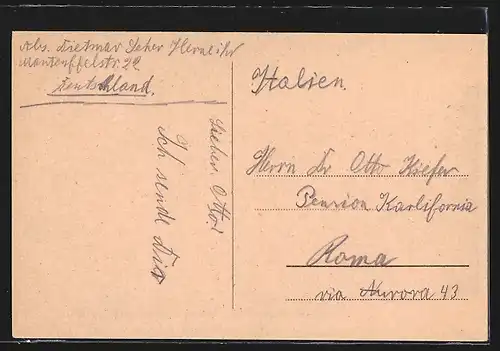 Abs. Dietmar
Manteuffelstr. 22
Deutschland.
Lieber Otto!
Ich sende Dir
Italien.
Herrn Dr Otto Kiefer
Pension Karlifornia
Roma
via Aurora 43